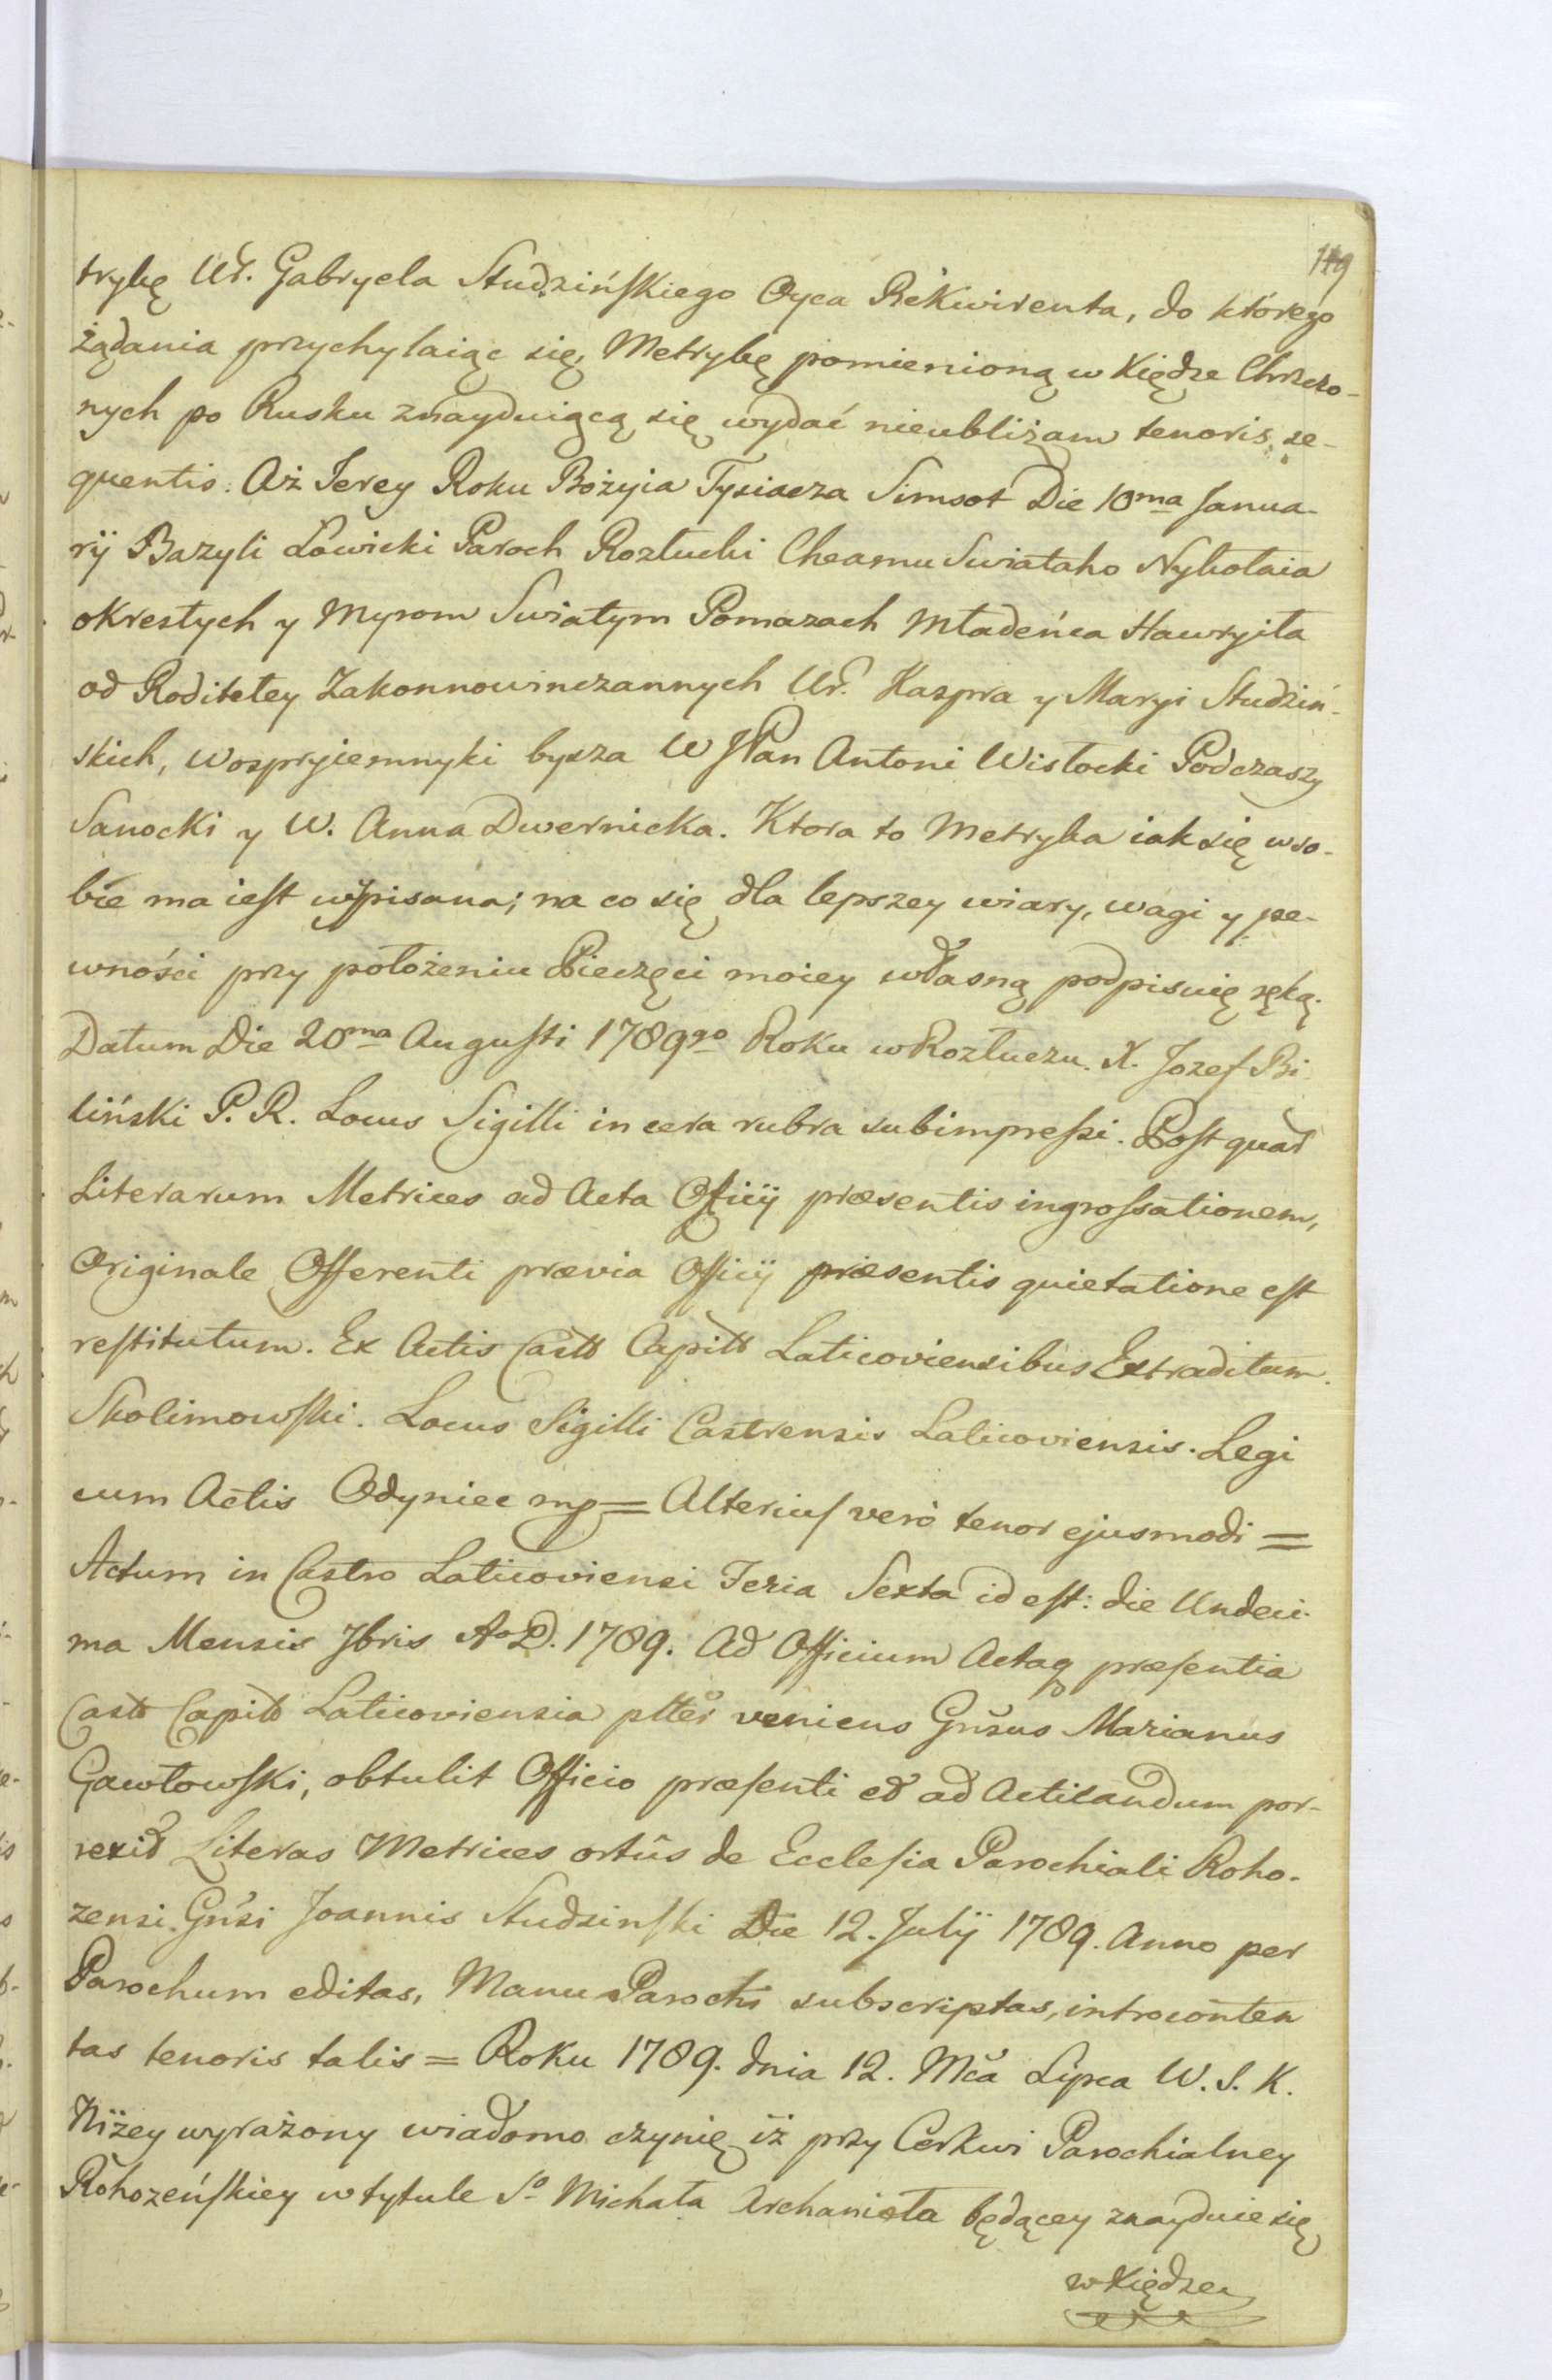 119
trykę Ur. Gabryela Studzińskiego Oyca Rekwirenta, do którego
żądania przychylaiąc się, Metrykę pomienioną w Xiędze Chrzczo-
nych po Rusku znayduiącą się wydać nieubliżam tenoris se-
quentis. Aż Jerey Roku Bożyia Tysiacza Simsot Die 10ma Janua-
rÿ Bazyli Łowicki Paroch Rozłucki Cheamu Swiataho Nykołaia
okrestych y Myrom Swiatym Pomazach Mładeńca Hawryiła
od Roditeley Zakonnowinczannych Ur. Kaspra y Maryi Studziń-
skich, wospryiemnyki bysza W JPan Antoni Wisłocki Podczaszy
Sanocki y W. Anna Dwernicka. Ktora to Metryka iak się w so-
bie ma iest wypisana; na co się dla lepszey wiary, wagi y pe-
wności przy położeniu Pieczęci moiey własną podpisuię ręką.
Datum Die 20ma Augusti 1789go Roku w Rozłuczu. X. Jozef Bi
liński P. R. Locus Sigilli in cera rubra subimpressi. Post quar
Literarum Metrices ad Acta Officÿ præsentis ingrossationem,
Originale Offerenti prævia Officÿ præsentis quietatione est
restitutum. Ex Actis Castr Capitt Laticoviensibus Extraditum.
Skolimowski. Locus Sigilli Castrensis Laticoviensis. Legi
cum Actis Odyniec mp = Alterius verò tenor ejusmodi =
Actum in Castro Laticoviensi Feria Sexta id est: die Undeci-
ma Mensis 7bris Ao D. 1789. Ad Officium Actaq præsentia
Castr Capitt Laticoviensia plter veniens Grnsus Marianus
Gawłowski, obtulit Officio præsenti et ad Acticandum por-
rexit Literas Metrices ortûs de Ecclesia Parochiali Roho-
zensi Gnsi Joannis Studzinski Die 12. Julÿ 1789. Anno per
Parochum editas, Manu Parochi subscriptas, introconten
tas tenoris talis = Roku 1789. dnia 12. Mca Lipca W. S. K.
Niżey wyrażony wiadomo czynię iż przy Cerkwi Parochialney
Rohozeńskiey w tytule So Michała Archanioła będącey znayduie się
w Xiędze